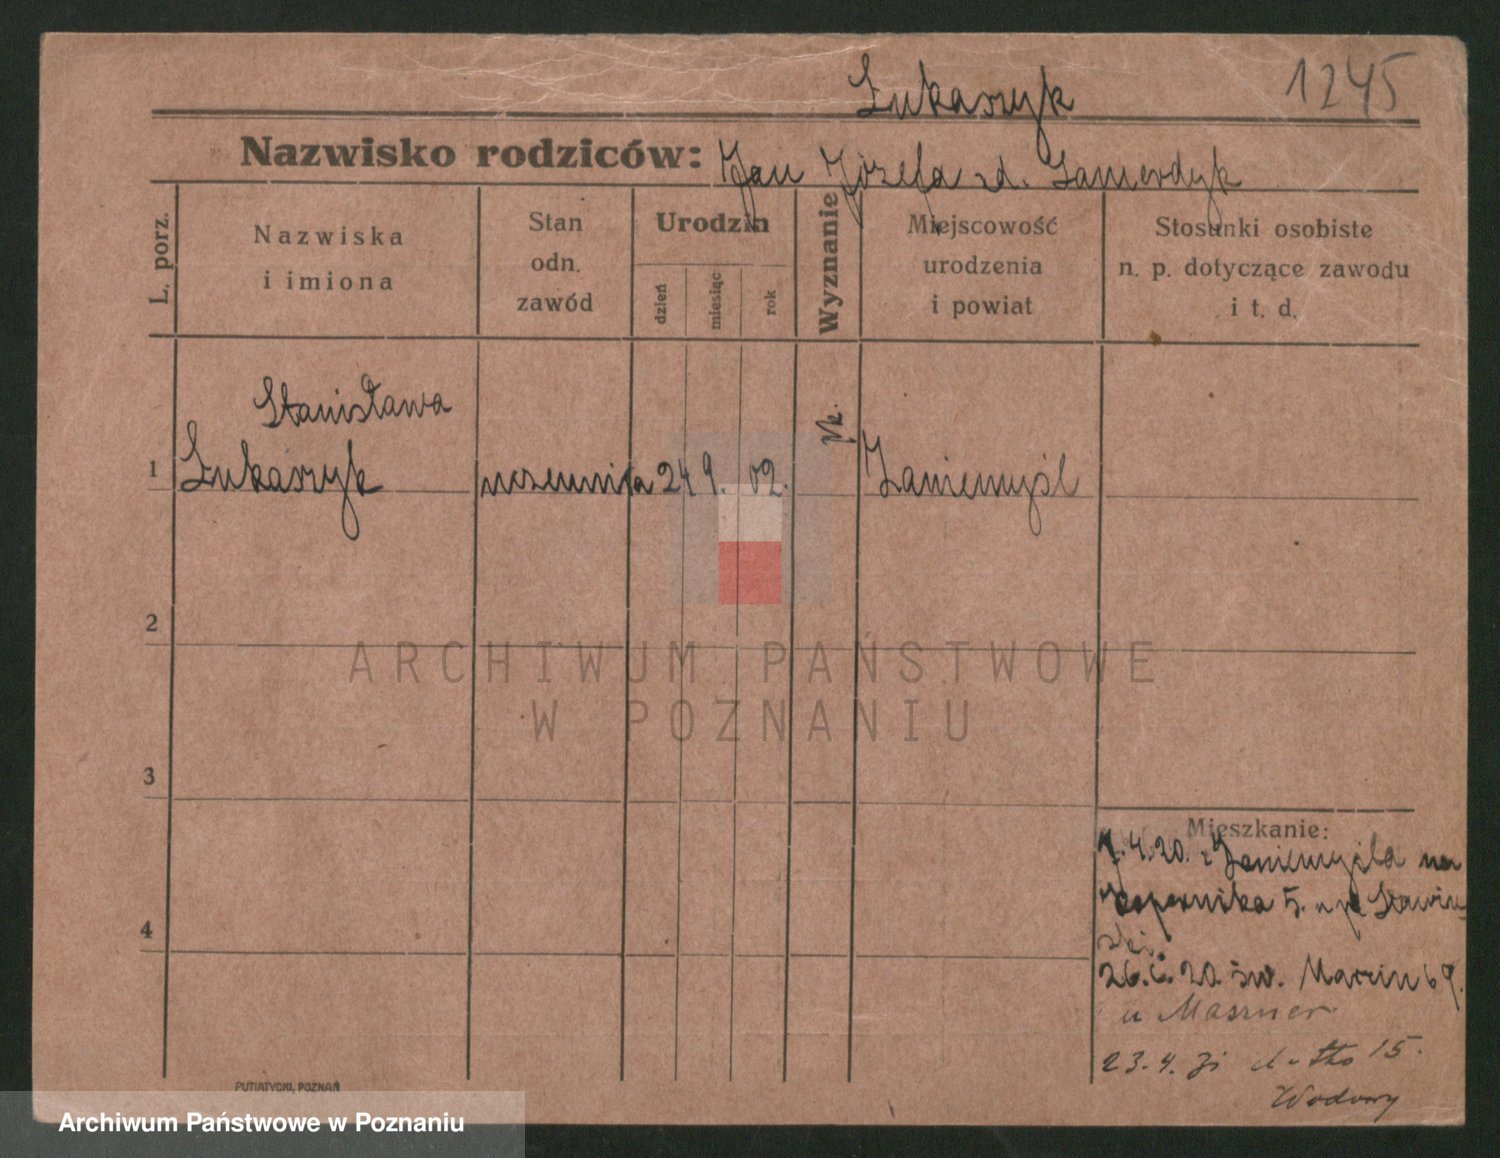 Łukaszyk 1245
Nazwisko rodziców: Jan Józefa zd. Samerdyk
L. porz.
Nazwiska
i imiona
Stan
odn.
zawód
Urodzin
dzień
miesiąc
rok
Wyznanie
Miejscowość
urodzenia
i powiat
Stosunki osobiste
n. p. dotyczące zawodu
i t. d.
Stanisława
1 Łukaszyk uczennica 24 9. 02. rk. Zaniemyśl
2
ARCHIWUM PAŃSTWOWE
W POZNANIU
3
Mieszkanie:
7.4.20. z Zaniemyśla na
Kopernika 5. u p.
4
26.6.20. św. Marcin 69.
u Maszner
23.4.
15.
Wodowy
PUTIATYCKI, POZNAŃ
Archiwum Państwowe w Poznaniu